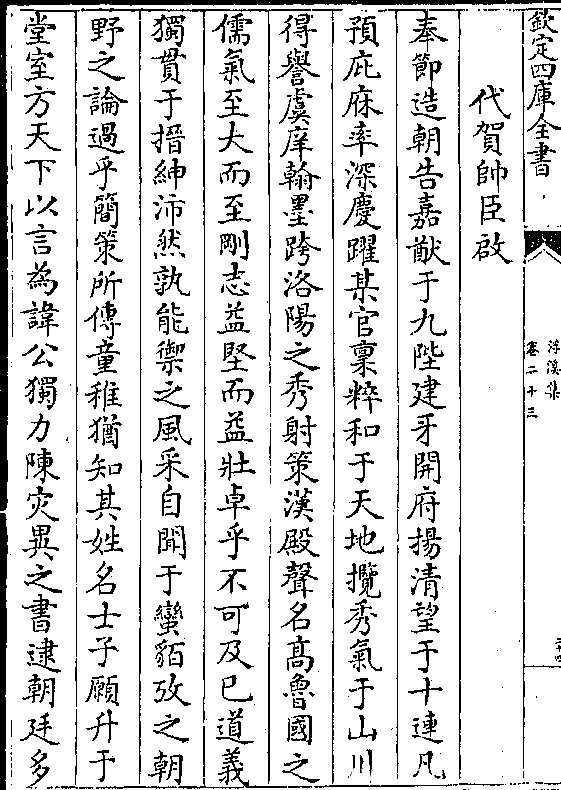 欽定四庫全書
浮溪集
卷二十三
二十四
代賀帥臣啟
奉節造朝告嘉猷于九陛建牙開府揚清望于十連凡
預庇庥率深慶躍某官稟粹和于天地攬秀氣于山川
得譽虞庠翰墨跨洛陽之秀射策漢殿聲名髙魯國之
儒氣至大而至剛志益堅而益壯卓乎不可及已道義
獨貫于搢紳沛然孰能禦之風采自聞于蠻貊攷之朝
野之論過乎簡策所傳童稚猶知其姓名士子願升于
堂室方天下以言為諱公獨力陳灾異之書逮朝廷多